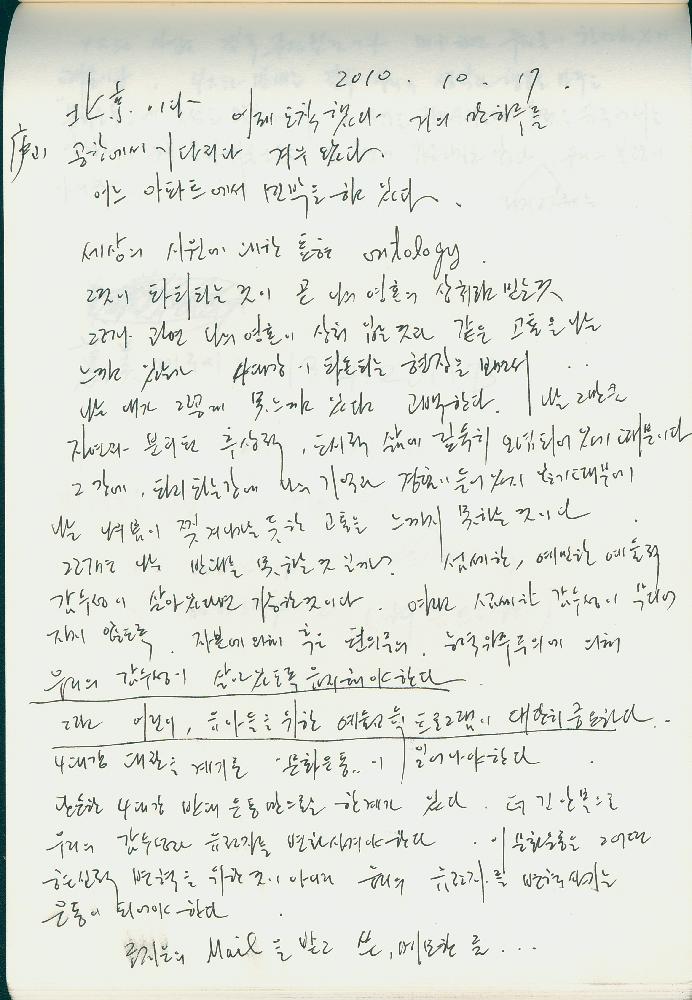 2010. 10. 17.
北京이다 어제 도착했다 거의 반하루를
공항에서 기다리다 겨우 왔다.
어느 아파트에서 민박을 하고 있다.
세상의 시원에 대한 통찰 ontology.
그것이 파괴되는 것이 곧 나의 영혼의 상처라 믿는 것
그러나 과연 나의 영혼이 상처 입는 것과 같은 고통을 나는
느끼고 있는가 4대강이 파괴되는 현장을 보면서 ..
나는 내가 그렇게 못 느끼고 있다고 고백한다. 나는 그만큼
자연과 분리된 추상적, 도시적 삶에 깊숙히 오염되어 있기 때문이다
그 강에, 파괴되는 강에 나의 기억과 경험이 들어있지 않기 때문에
나는 내 몸이 찢겨나가는 듯한 고통을 느끼지 못하는 것이다.
그러면 나는 반대를 못할 것인가? 섬세한, 예민한 예술적
감수성이 살아있다면 가능한 것이다. 여린 섬세한 감수성이
지지 않도록. 자본에 의해 혹은 편의주의, 능력위주주의에 의해
우리의 감수성이 살아있도록 유지해야 한다.
그래 어린이, 유아들을 위한 예술교육 프로그램이 대단히 중요하다..
4대강 대환을 계기로 "문화운동"이 일어나야 한다.
단순한 4대강 반대 운동만으로는 한계가 있다. 더 긴 안목으로
우리의 감수성과 유전자를 변화시켜야 한다. 이 문화운동은 그 어떤
현실적 변혁을 위한 것이 아니라 우리의 유전자를 변혁시키는
운동이 되어야 한다.
Mail을 받고 쓴, 메모한 글...